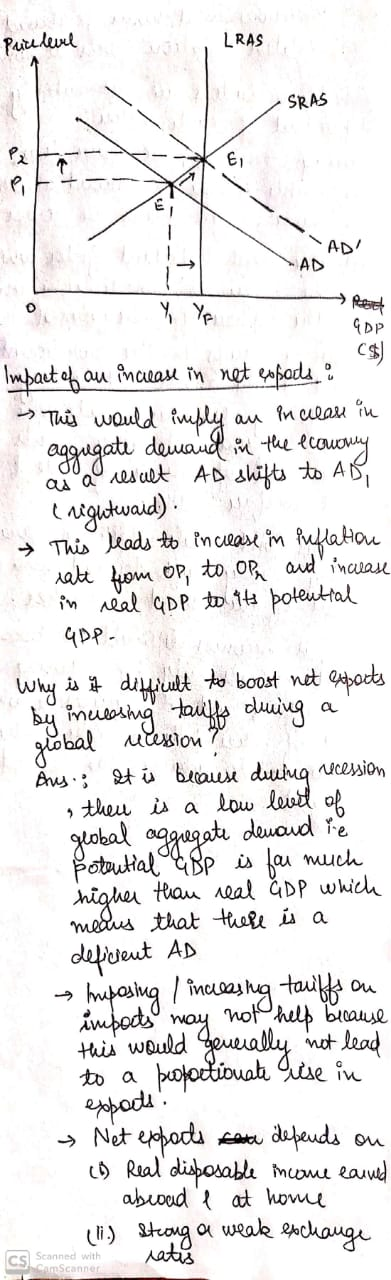 Price level
LRAS
SRAS
P2
P1
E1
E
AD'
AD
O
Y1 YF
Real
GDP
(C$)
Impact of an increase in net exports :
→ This would imply an increase in
aggregate demand in the economy
as a result AD shifts to AD1
(rightward).
→ This leads to increase in inflation
rate from OP1 to OP2 and increase
in real GDP to its potential
GDP.
Why is it difficult to boost net exports
by increasing tariffs during a
global recession?
Ans.: It is because during recession
, there is a low level of
global aggregate demand i.e
Potential GDP is far much
higher than real GDP which
means that there is a
deficient AD
→ Imposing / increasing tariffs on
imports may not help because
this would generally not lead
to a proportionate rise in
exports.
→ Net exports depends on
(i) Real disposable income earned
abroad & at home
(ii.) Strong or weak exchange
rates
CS Scanned with
CamScanner